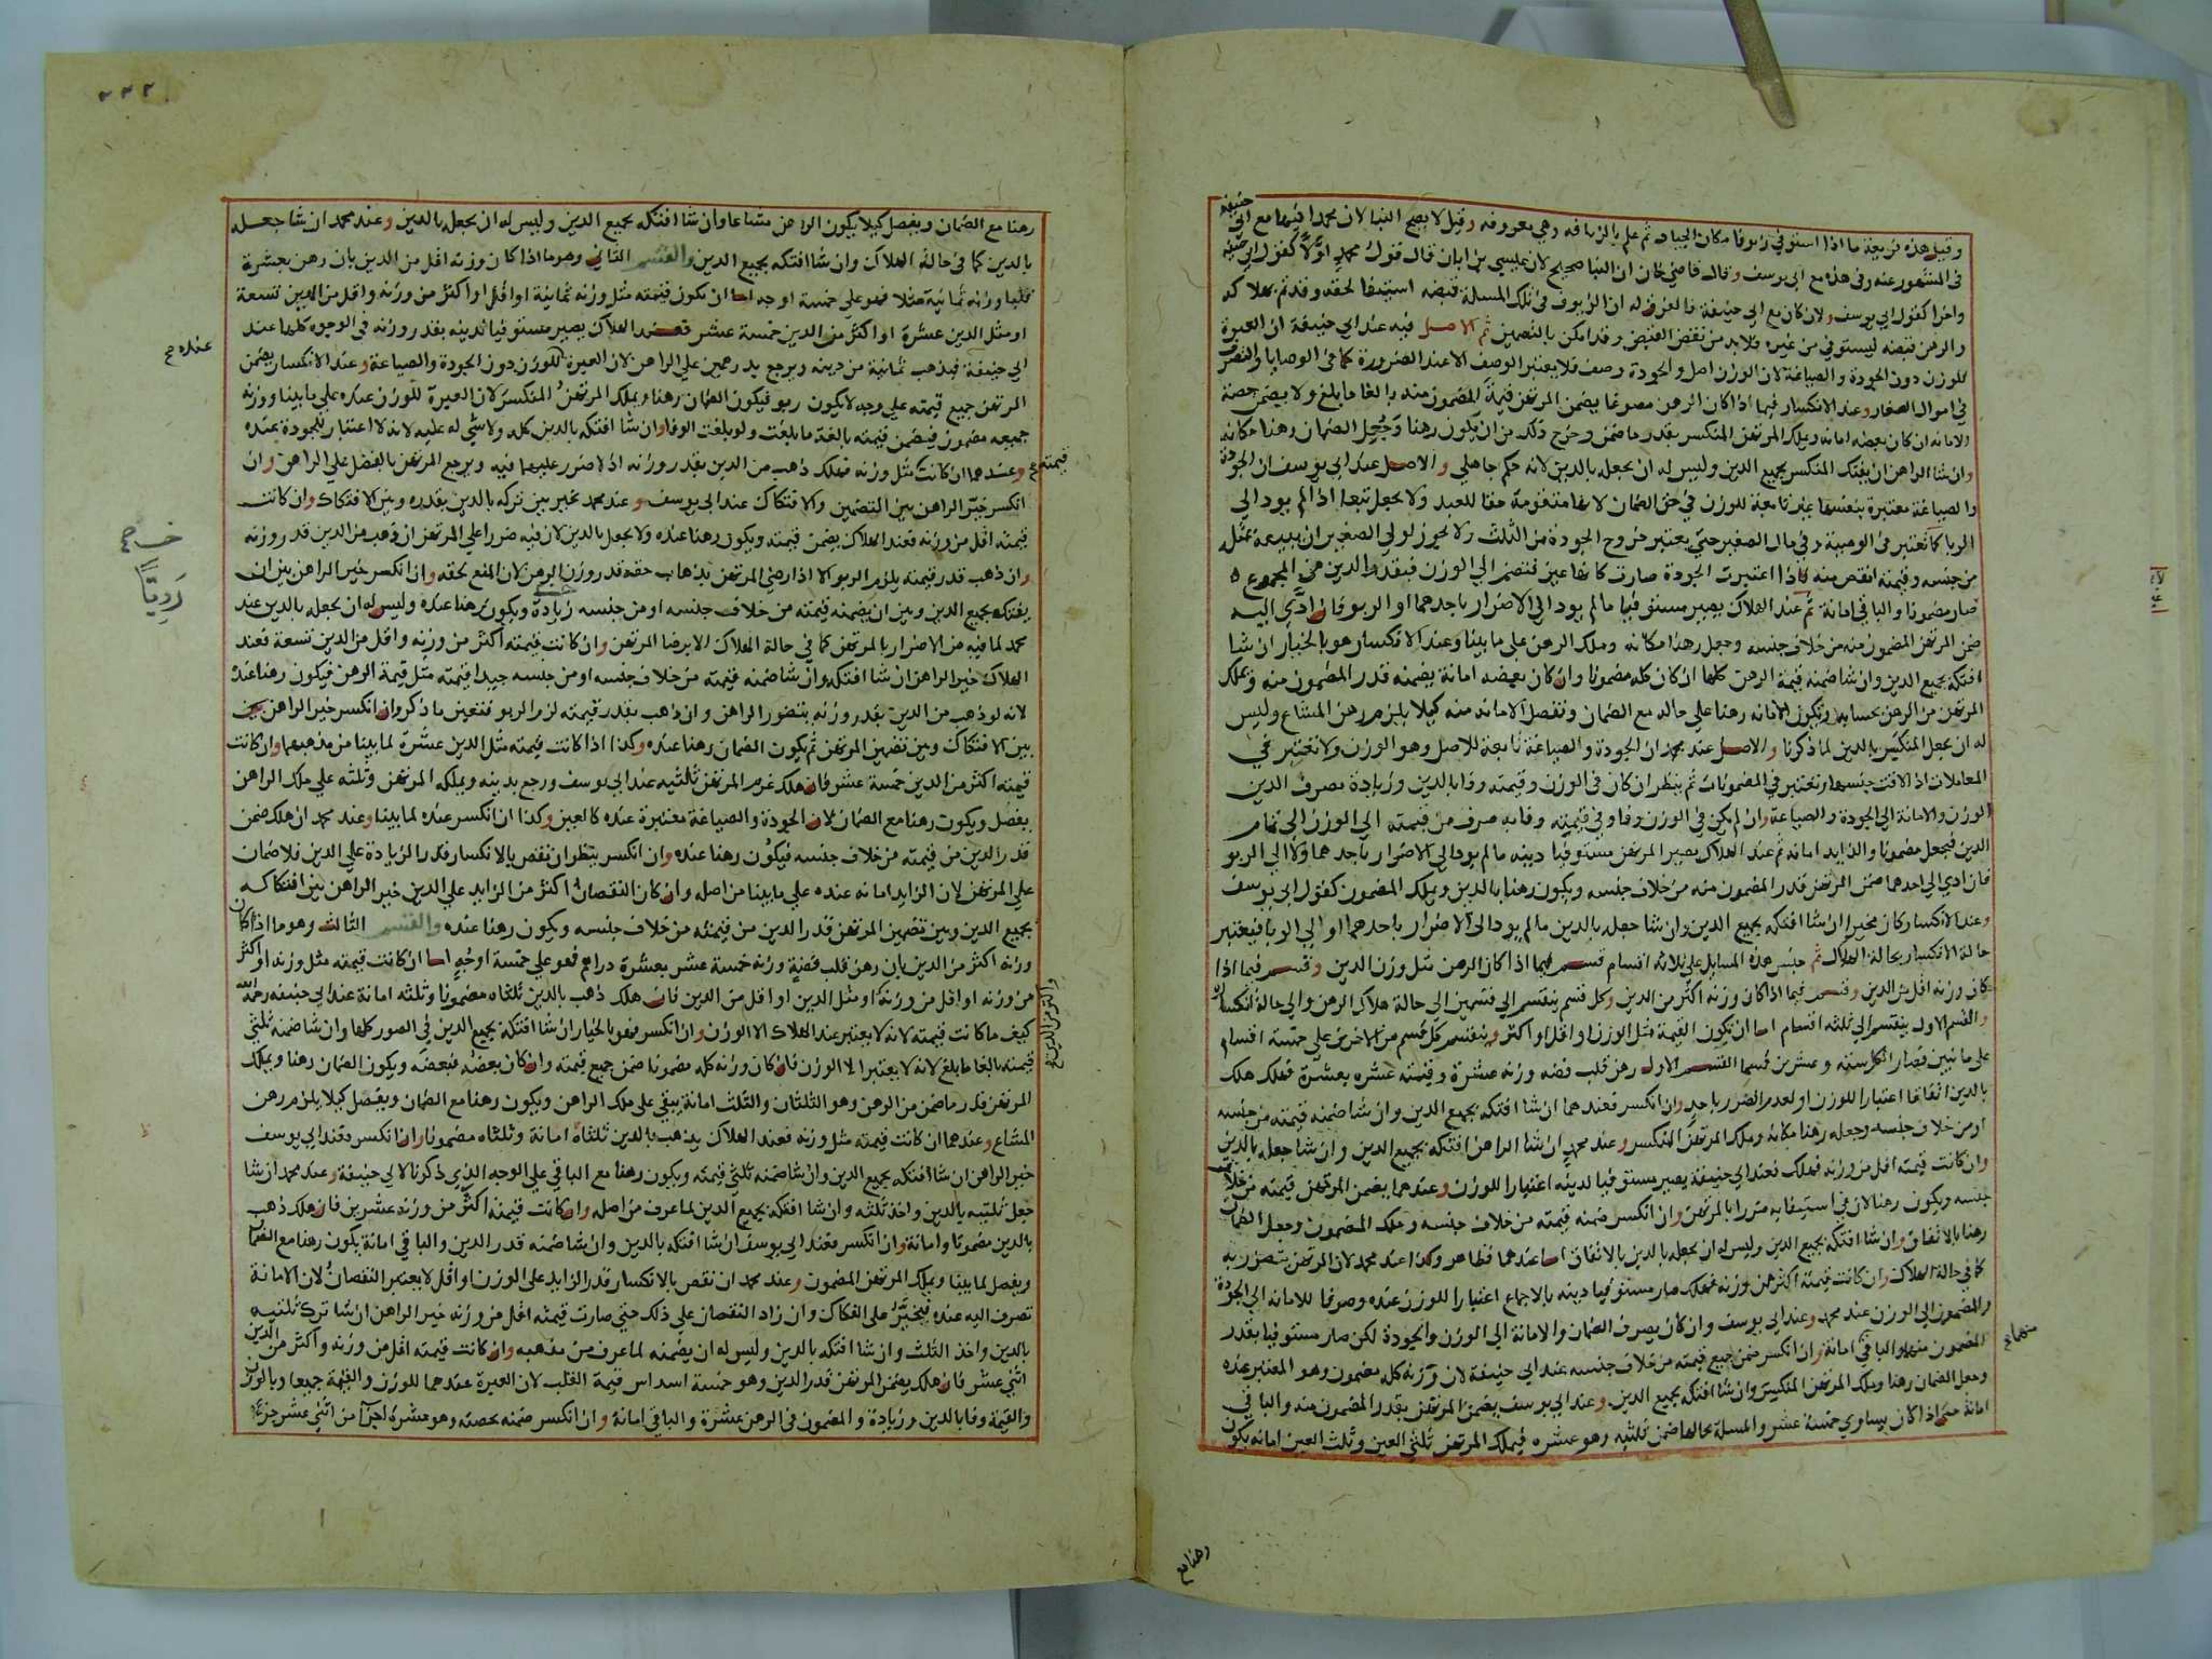 وقيل هذه فريعة ما اذا استوفي زيوفا مكان الجياد ثم علم بالزيافه وهي معروفه وقيل لا يصح البنا لان محمدا فيها مع ابي حنيفه
في المشهور عنه وفي هذه مع ابي يوسف وقال قاضي خان ان البنا صحيح لان عيسي بن ابان قال قول محمد اولا كقول ابي حنيفه
واخرا كقول ابي يوسف ولان كان مع ابي حنيفة فالفرق له ان الزيوف في تلك المسلة قبضه استيفا لحقه وقد تم بهلاكه
والرهن قبضه ليستوفي من غيره فلا بد من نقض القبض وقد امكن بالتضمين ثم الاصل فيه عند ابي حنيفة ان العبرة
للوزن دون الجودة والصياغة لان الوزن اصل والجودة وصف فلا يعتبر الوصف الا عند الضرورة كما في الوصايا والتصرف
في اموال الصغار وعند الانكسار فيما اذا كان الرهن مصوغا يضمن المرتهن قيمة المضمون منه بالغا ما بلغ ولا يضمن حصة
الامانه ان كان بعضه امانه ويملك المرتهن المنكسر بقدر ما ضمن وخرج ذلك من ان يكون رهنا وجعل الضمان رهنا مكانه
وان شا الراهن ان يفتك المنكسر بجميع الدين وليس له ان يجعله بالدين لانه حكم جاهلي والاصل عند ابي يوسف ان الجودة
والصياغة معتبرة بنفسها غير تابعة للوزن في حق الضمان لانها متقومة حقا للعبد ولا يجعل تبعا اذا لم يود الي
الربا كما تعتبر في الوصية وفي مال الصغير حتي يعتبر خروج الجودة من الثلث ولا يجوز لولي الصغير ان يبيعه بمثل
من جنسه وقيمته انقص منه فاذا اعتبرت الجودة صارت كانها عين فتضم الي الوزن فبقدر الدين من المجموع
صار مضمونا والباقي امانة ثم عند الهلاك يصير مستوفيا ما لم يود الي الاضرار باحدهما او الربو فان ادي اليه
ضمن المرتهن المضمون منه من خلاف جنسه وجعل رهنا مكانه وملك الرهن علي ما بينا وعند الانكسار هو بالخيار ان شا
افتكه بجميع الدين وان شا ضمنه قيمة الرهن كلها ان كان كله مضمونا وان كان بعضه امانة يضمنه قدر المضمون منه ويملك
المرتهن من الرهن بحسابه وتكون الامانه رهنا علي حاله مع الضمان وتفصل الامانه منه كيلا يلزم رهن المشاع وليس
له ان يجعل المنكسر بالدين لما ذكرنا والاصل عند محمد ان الجودة والصياغة تابعة للاصل وهو الوزن ولا تعتبر في
المعاملات اذا لاقت جنسها وتعتبر في المضمونات ثم ينظر ان كان في الوزن وقيمته وفا بالدين وزيادة يصرف الدين
الوزن والامانة الي الجودة والصياغة وان لم يكن في الوزن وفا وفي قيمته وفا به صرف من قيمته الي الوزن الي تمام
الدين فيجعل مضمونا والزايد امانه ثم عند الهلاك يصير المرتهن مستوفيا دينه ما لم يود الي الاضرار باحدهما ولا الي الربو
فان ادي الي احدهما ضمن المرتهن قدر المضمون منه من خلاف جنسه ويكون رهنا بالدين ويملك المضمون كقول ابي يوسف
وعند الانكسار كان مخيرا ان شا افتكه بجميع الدين وان شا جعله بالدين ما لم يود الي الاضرار باحدهما او الي الربا فيعتبر
حالة الانكسار بحالة الهلاك ثم جنس هذه المسايل علي ثلاثة اقسام قسم فيما اذا كان الرهن مثل وزن الدين وقسم فيما اذا
كان وزنه اقل من الدين وقسم فيما اذا كان وزنه اكثر من الدين وكل قسم ينقسم الي قسمين الي حالة هلاك الرهن والي حالة انكساره
والقسم الاول ينقسم الي ثلثه اقسام اما ان تكون القيمة مثل الوزن او اقل او اكثر وينقسم كل قسم من الاخرين علي خمسة اقسام
علي ما نبين فصار الكل ستة وعشرين قسما القسم الاول رهن قلب فضه وزنه عشرة وقيمته عشره بعشرة فهلك هلك
بالدين اتفاقا اعتبارا للوزن او لعدم الضرر باحد وان انكسر فعندهما ان شا افتكه بجميع الدين وان شا ضمنه قيمته من جنسه
او من خلاف جنسه وجعله رهنا مكانه وملك المرتهن المنكسر وعند محمد ان شا الراهن افتكه بجميع الدين وان شا جعله بالدين
وان كانت قيمته اقل من وزنه فهلك فعند ابي حنيفة يصير مستوفيا لدينه اعتبارا للوزن وعندهما يضمن المرتهن قيمته من خلاف
جنسه ويكون رهنا لان في استيفايه ضررا بالمرتهن وان انكسر ضمنه قيمته من خلاف جنسه وملك المضمون وجعل الضمان
رهنا بالاتفاق وان شا افتكه بجميع الدين وليس له ان يجعله بالدين بالاتفاق اما عندهما فظاهر وكذا عند محمد لان المرتهن يتضرر به
كما في حالة الهلاك وان كانت قيمته اكثر من وزنه فهلك صار مستوفيا دينه بالاجماع اعتبارا للوزن عنده وصرفا للامانه الي الجودة
والمضمون الي الوزن عند محمد وعند ابي يوسف وان كان يصرف الضمان والامانة الي الوزن والجودة لكن صار مستوفيا بقدر
المضمون منها والباقي امانة وان انكسر ضمن جميع قيمته من خلاف جنسه عند ابي حنيفة لان وزنه كله مضمون وهو المعتبر عنده
وجعل الضمان رهنا وملك المرتهن المنكسر وان شا افتكه بجميع الدين وعند ابي يوسف يضمن المرتهن بقدر المضمون منه والباقي
امانة حتي اذا كان يساوي خمسة عشر والمسلة بحالها ضمن ثلثيه وهو عشره فيملك المرتهن ثلثي العين وثلث العين امانه يكون
منهما صح
رهنا مع
٢٣٢
رهنا مع الضمان ويفصل كيلا يكون الرهن مشاعا وان شا افتكه بجميع الدين وليس له ان يجعل بالدين وعند محمد ان شا جعله
بالدين كما في حالة الهلاك وان شا افتكه بجميع الدين والقسم الثاني وهو ما اذا كان وزنه اقل من الدين بان رهن بعشرة
قلبا وزنه ثمانية مثلا فهو علي خمسة اوجه اما ان تكون قيمته مثل وزنه ثمانية او اقل او اكثر من وزنه واقل من الدين تسعة
او مثل الدين عشرة او اكثر من الدين خمسة عشر فعند الهلاك يصير مستوفيا لدينه بقدر وزنه في الوجوه كلها عند
ابي حنيفة فيذهب ثمانية من دينه ويرجع بدرهمين علي الراهن لان العبرة للوزن دون الجودة والصياغة وعند الانكسار يضمن
المرتهن جميع قيمته علي وجه لا يكون ربو فيكون الضمان رهنا ويملك المرتهن المنكسر لان العبرة للوزن عنده علي ما بينا ووزنه
جميعه مضمون فيضمن قيمته بالغة ما بلغت ولو بلغت الوفا وان شا افتكه بالدين كله ولا شي له عليه لانه لا اعتبار للجودة عنده
وعندهما ان كانت مثل وزنه فهلك ذهب من الدين بقدر وزنه اذ لا ضرر عليهما فيه ويرجع المرتهن بالفضل علي الراهن وان
انكسر خير الراهن بين التضمين والافتكاك عند ابي يوسف وعند محمد يخير بين تركه بالدين بقدره وبين الافتكاك وان كانت
قيمته اقل من وزنه فعند الهلاك يضمن قيمته ويكون رهنا عنده ولا يجعل بالدين لان فيه ضررا علي المرتهن ان ذهب من الدين قدر وزنه
وان ذهب قدر قيمته يلزم الربو الا اذا رضي المرتهن بذهاب حقه قدر وزن الرهن لان المنع لحقه وان انكسر خير الراهن بين ان
يفتكه بجميع الدين وبين ان يضمنه قيمته من خلاف جنسه او من جنسه زيادة ويكون رهنا عنده وليس له ان يجعله بالدين عند
محمد لما فيه من الاضرار بالمرتهن كما في حالة الهلاك الا برضا المرتهن وان كانت قيمته اكثر من وزنه واقل من الدين تسعة فعند
الهلاك خير الراهن ان شا افتكه وان شا ضمنه قيمته من خلاف جنسه او من جنسه جيدا قيمته مثل قيمة الرهن فيكون رهنا عنده
لانه لو ذهب من الدين بقدر وزنه يتضرر الراهن وان ذهب بقدر قيمته لزم الربو فتعين ما ذكر وان انكسر خير الراهن بين
بين الافتكاك وبين تضمين المرتهن ثم يكون الضمان رهنا عنده وكذا اذا كانت قيمته مثل الدين عشرة لما بينا من مذهبهما وان كانت
قيمته اكثر من الدين خمسة عشر فان هلك غرم المرتهن ثلثيه عند ابي يوسف ورجع بدينه ويملكه المرتهن وثلثه علي ملك الراهن
يفصل ويكون رهنا مع الضمان لان الجودة والصياغة معتبرة عنده كالعين وكذا ان انكسر عنده لما بينا وعند محمد ان هلك ضمن
قدر الدين من قيمته من خلاف جنسه فيكون رهنا عنده وان انكسر ينظر ان نقص بالانكسار قدر الزيادة علي الدين فلا ضمان
علي المرتهن لان الزايد امانه عنده علي ما بينا من اصله وان كان النقصان اكثر من الزايد علي الدين خير الراهن بين افتكاكه
بجميع الدين وبين تضمين المرتهن قدر الدين من قيمته من خلاف جنسه ويكون رهنا عنده والقسم الثالث وهو ما اذا كان
وزنه اكثر من الدين بان رهن قلب فضة وزنه خمسة عشر بعشرة دراهم فهو علي خمسة اوجه اما ان كانت قيمته مثل وزنه او اكثر
من وزنه او اقل من وزنه او مثل الدين او اقل من الدين فان هلك ذهب بالدين ثلثاه مضمونا وثلثه امانة عند ابي حنيفه رحمه الله
كيف ما كانت قيمته لانه لا يعتبر عند الهلاك الا الوزن وان انكسر فهو بالخيار ان شا افتكه بجميع الدين في الصور كلها وان شا ضمنه ثلثي
قيمته بالغا ما بلغ لانه لا يعتبر الا الوزن فان كان وزنه كله مضمونا ضمن جميع قيمته وان كان بعضه فبعضه ويكون الضمان رهنا ويملك
المرتهن قدر ما ضمن من الرهن وهو الثلثان والثلث امانة يبقي علي ملك الراهن ويكون رهنا مع الضمان ويفصل كيلا يلزم رهن
المشاع وعندهما ان كانت قيمته مثل وزنه فعند الهلاك يذهب بالدين ثلثاه امانة وثلثاه مضمونا وان انكسر فعند ابي يوسف
خير الراهن ان شا افتكه بجميع الدين وان شا ضمنه ثلثي قيمته ويكون رهنا مع الباقي علي الوجه الذي ذكرنا لابي حنيفة وعند محمد ان شا
جعل ثلثيه بالدين واخذ ثلثه وان شا افتكه بجميع الدين لما عرف من اصله وان كانت قيمته اكثر من وزنه عشرين فان هلك ذهب
بالدين مضمونا وامانة وان انكسر فعند ابي يوسف ان شا افتكه بالدين وان شا ضمنه قدر الدين والباقي امانة يكون رهنا مع الضمان
ويفصل لما بينا ويملك المرتهن المضمون وعند محمد ان نقص بالانكسار قدر الزايد علي الوزن او اقل لا يعتبر النقصان لان الامانة
تصرف اليه عنده فيجبر علي الفكاك وان زاد النقصان علي ذلك حتي صارت قيمته اقل من وزنه خير الراهن ان شا ترك ثلثيه
بالدين واخذ الثلث وان شا افتكه بالدين وليس له ان يضمنه لما عرف من مذهبه وان كانت قيمته اقل من وزنه واكثر من الدين
اثني عشر فان هلك يضمن المرتهن قدر الدين وهو خمسة اسداس قيمة القلب لان العبرة عندهما للوزن والقيمة جميعا وبالوزن
والقيمة وفا بالدين وزيادة والمضمون في الرهن عشرة والباقي امانة وان انكسر ضمنه بحصته وهو عشرة اجزا من اثني عشر جزءا
عنده صح
قيمته صح
رديا